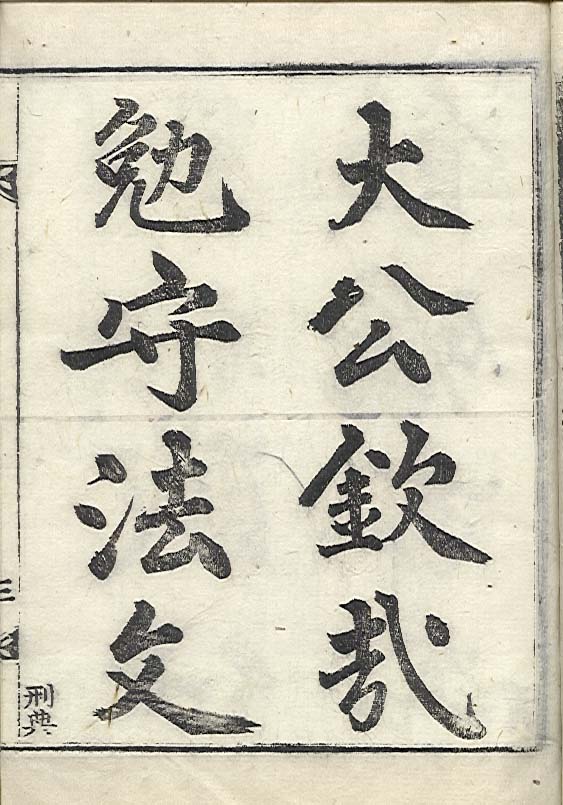 大公欽哉
勉守法文
三
刑典